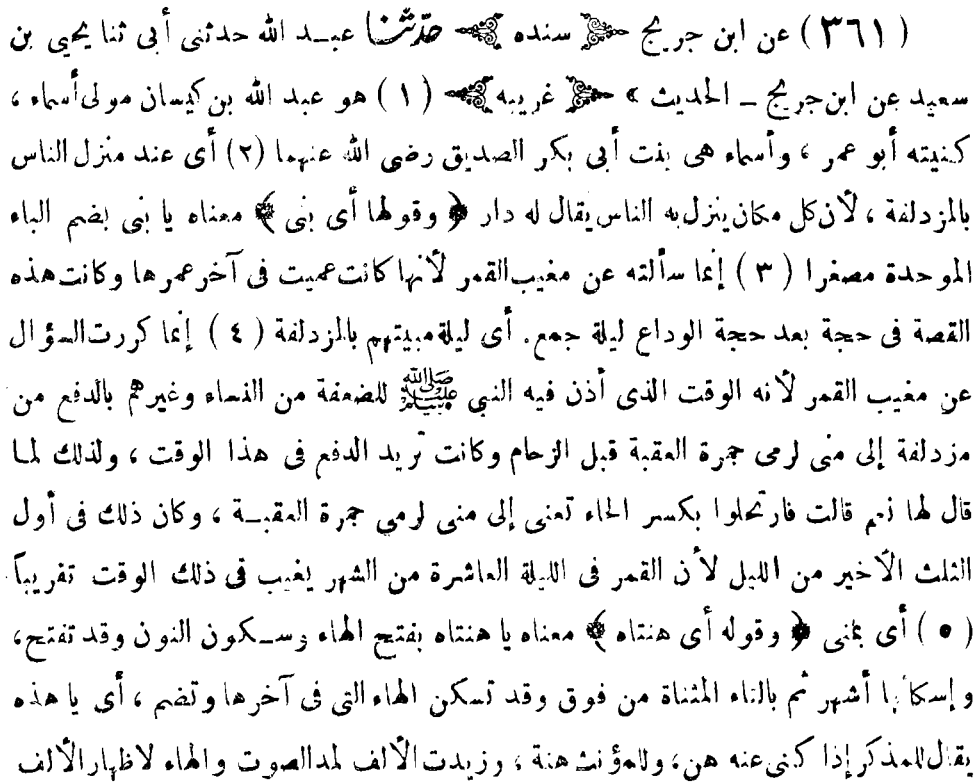 (٣٦١) عن ابن جريج ﴿ سنده ﴾ حدّثنا عبد الله حدثنى أبى ثنا يحيى بن
سعيد عن ابن جريج ـ الحديث » ﴿ غريبه ﴾ (١) هو عبد الله بن كيسان مولى أسماء ،
كنيته أبو عمر ، وأسماء هى بنت أبى بكر الصديق رضى الله عنهما (٢) أى عند منزل الناس
بالمزدلفة ، لأن كل مكان ينزل به الناس يقال له دار ﴿ وقولها أى بنى ﴾ معناه يا بنى بضم الباء
الموحدة مصغرا (٣) إنما سألته عن مغيب القمر لأنها كانت عميت فى آخر عمرها وكانت هذه
القصة فى حجة بعد حجة الوداع ليلة جمع. أى ليلة مبيتهم بالمزدلفة (٤) إنما كررت السؤال
عن مغيب القمر لأنه الوقت الذى أذن فيه النبى ﷺ للضعفة من النساء وغيرهم بالدفع من
مزدلفة إلى منى لرمى جمرة العقبة قبل الزحام وكانت تريد الدفع فى هذا الوقت ، ولذلك لما
قال لها نعم قالت فارتحلوا بكسر الحاء تعنى إلى منى لرمى جمرة العقبة ، وكان ذلك فى أول
الثلث الأخير من الليل لأن القمر فى الليلة العاشرة من الشهر يغيب فى ذلك الوقت تقريباً
(٥) أى بمنى ﴿ وقوله أى هنتاه ﴾ معناه يا هنتاه بفتح الهاء وسكون النون وقد تفتح،
وإسكانها أشهر ثم بالتاء المثناة من فوق وقد تسكن الهاء التى فى آخرها وتضم ، أى يا هذه
يقال للمذكر إذا كنى عنه هن، وللمؤنث هنة ، وزيدت الألف لمد الصوت والهاء لاظهار الألف